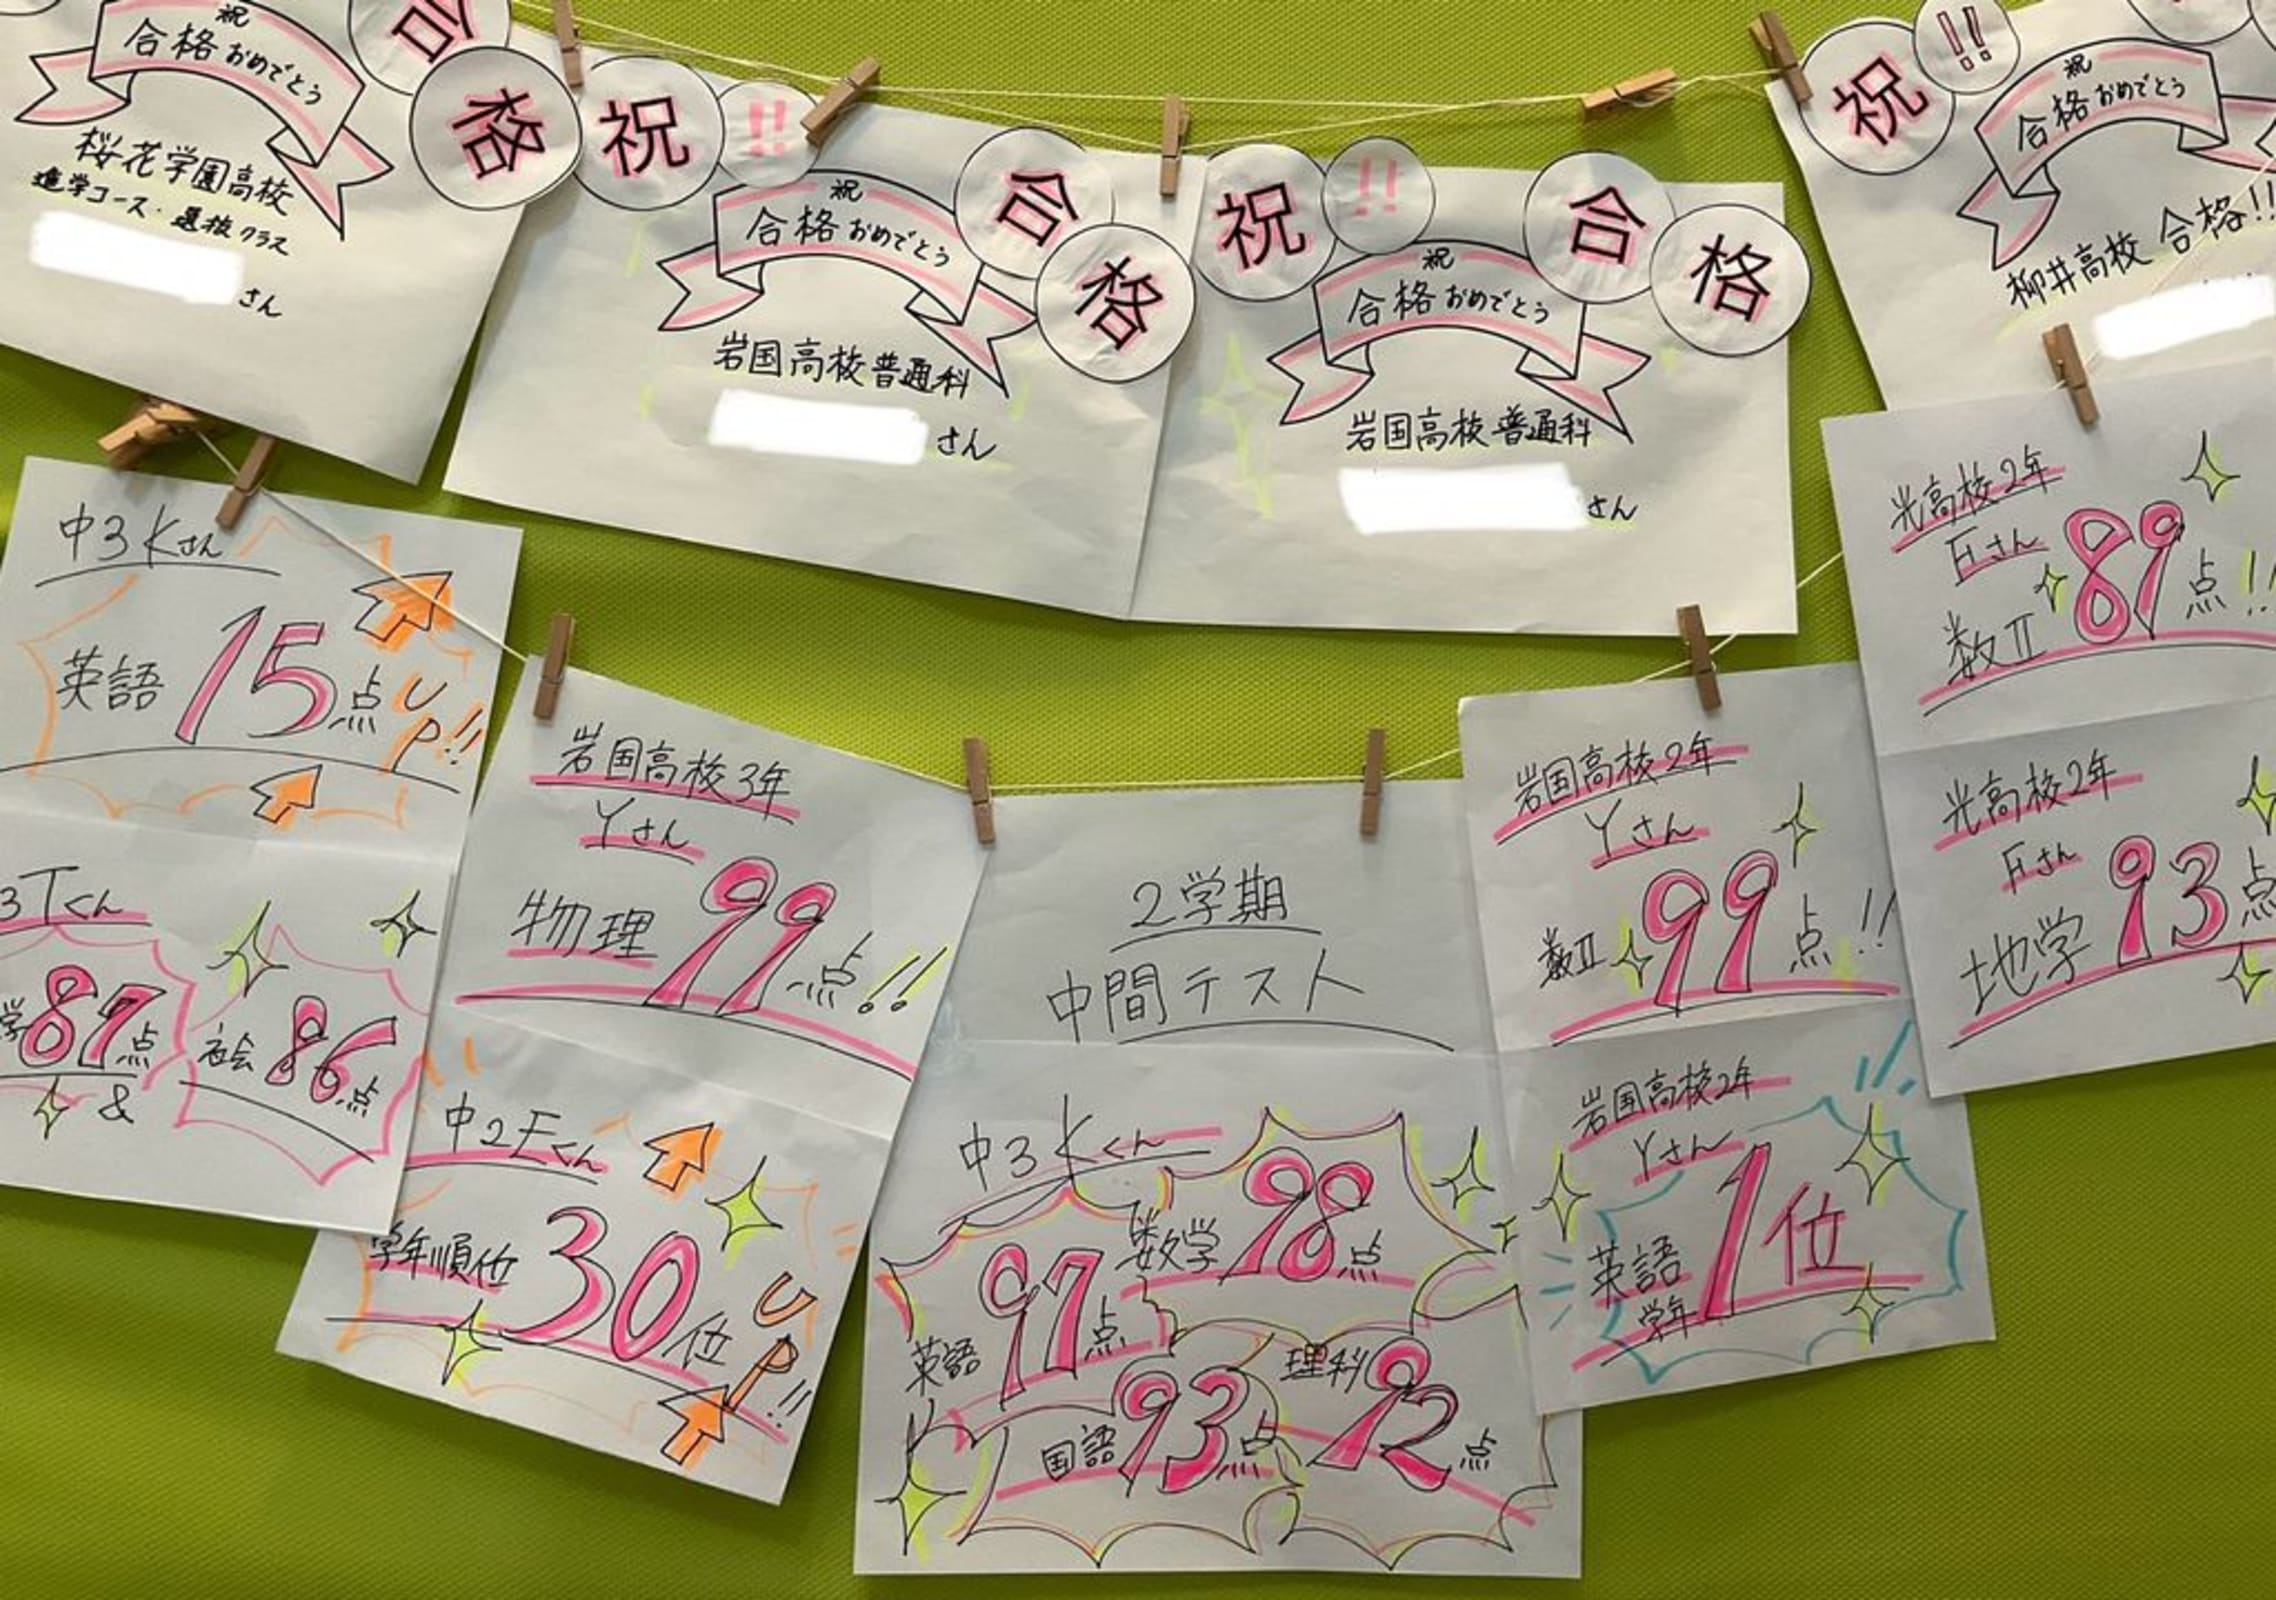 祝
合格おめでとう
桜花学園高校
進学コース・選抜クラス
さん
合格
祝!!
祝
合格おめでとう
合格
岩国高校普通科
さん
祝!!
祝
合格おめでとう
合格
岩国高校普通科
さん
祝!!
祝
合格おめでとう
柳井高校 合格!!
中3 Kさん
英語 15点UP!!
3Tくん
学87点
&
社会 86点
岩国高校3年
Yさん
物理 99点!!
中2 Eくん
学年順位 30位UP!!
2学期
中間テスト
中3 Kくん
数学 98点
英語 97点
理科 92点
国語 93点
岩国高校2年
Yさん
数II 99点!!
岩国高校2年
Yさん
英語 学年 1位
光高校2年
さん
数II 89点!!
光高校2年
さん
地学 93点